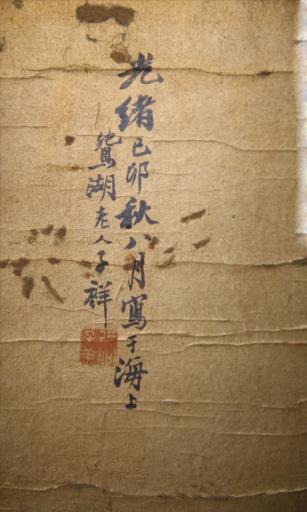 光緒己卯秋八月寫于海上
鴛湖老人子祥